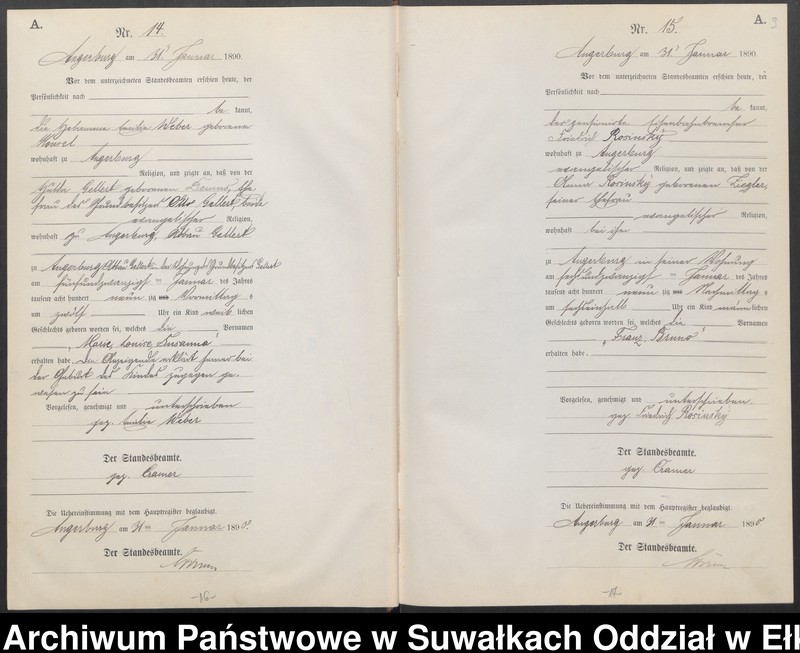 A.
Nr. 14.
Angerburg am 31t Januar 1890.
Vor dem unterzeichneten Standesbeamten erschien heute, der
Persönlichkeit nach
be kannt,
die Hebamme Emilie Weber geborene
wohnhaft zu Angerburg
Religion, und zeigte an, daß von der
Gellert geborenen Ehe
frau des Grundbesitzers Otto Gellert, beide
evangelischer Religion,
wohnhaft zu Angerburg, Abbau Gellert
zu Angerburg Abbau Gellert in der Wohnung des Grundbesitzers Gellert
am fünfundzwanzigst en Januar des Jahres
tausend acht hundert neun zig Vormittag s
um zwölf Uhr ein Kind weib lichen
Geschlechts geboren worden sei, welches die Vornamen
„Marie, Louise, Susanna“
erhalten habe. Die Anzeigende erklärt ferner bei
der Geburt des Kindes zugegen ge-
wesen zu sein
Vorgelesen, genehmigt und unterschrieben
gez. Emilie Weber
Der Standesbeamte.
gez. Cramer
Die Uebereinstimmung mit dem Hauptregister beglaubigt.
Angerburg am 31 ten Januar 1890.
Der Standesbeamte.
-16-
A. 9
Nr. 15.
Angerburg am 31t Januar 1890.
Vor dem unterzeichneten Standesbeamten erschien heute, der
Persönlichkeit nach
be kannt,
der pensionirte Eisenbahnbremser
Friedrich Rosinsky
wohnhaft zu Angerburg
evangelischer Religion, und zeigte an, daß von der
Rosinsky geborenen Ziegler,
seiner Ehefrau
evangelischer Religion,
wohnhaft bei ihm
zu Angerburg in seiner Wohnung
am sechsundzwanzigst en Januar des Jahres
tausend acht hundert neun zig Nachmittag s
um sechseinhalb Uhr ein Kind männ lichen
Geschlechts geboren worden sei, welches die Vornamen
„Franz, Bruno“
erhalten habe.
Vorgelesen, genehmigt und unterschrieben
gez. Friedrich Rosinsky
Der Standesbeamte.
gez. Cramer
Die Uebereinstimmung mit dem Hauptregister beglaubigt.
Angerburg am 31 ten Januar 1890
Der Standesbeamte.
-17-
Archiwum Państwowe w Suwałkach Oddział w Ełk